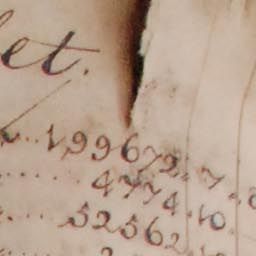 et.
199672.. 7..
4774.10.
52562.